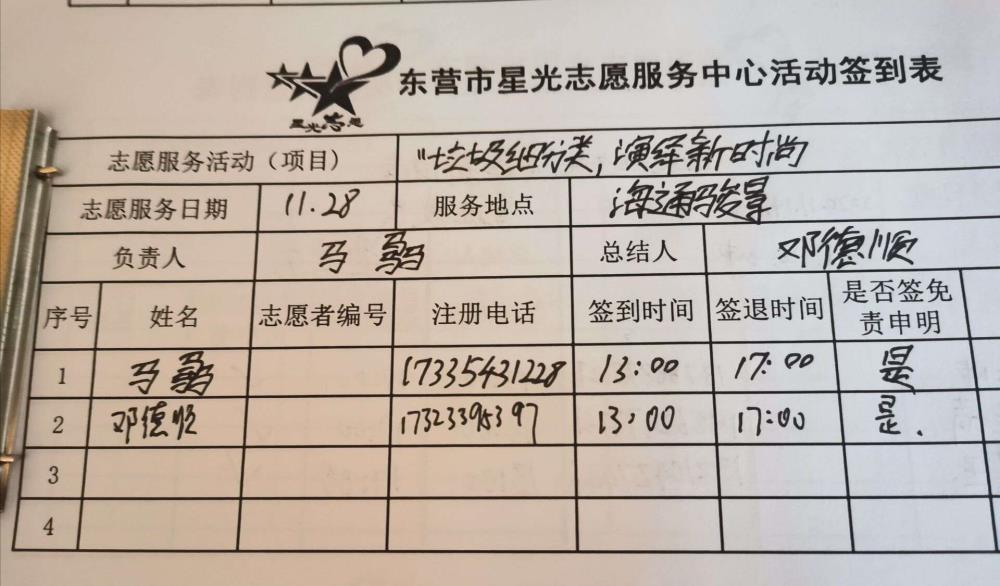 星光志愿
东营市星光志愿服务中心活动签到表
志愿服务活动（项目） "垃圾细分类,演绎新时尚
志愿服务日期 11.28 服务地点 海通骏景
负责人 马骉 总结人 邓德顺
序号 姓名 志愿者编号 注册电话 签到时间 签退时间 是否签免
责申明
1 马骉 17335431228 13:00 17:00 是
2 邓德顺 17323395397 13:00 17:00 是.
3
4